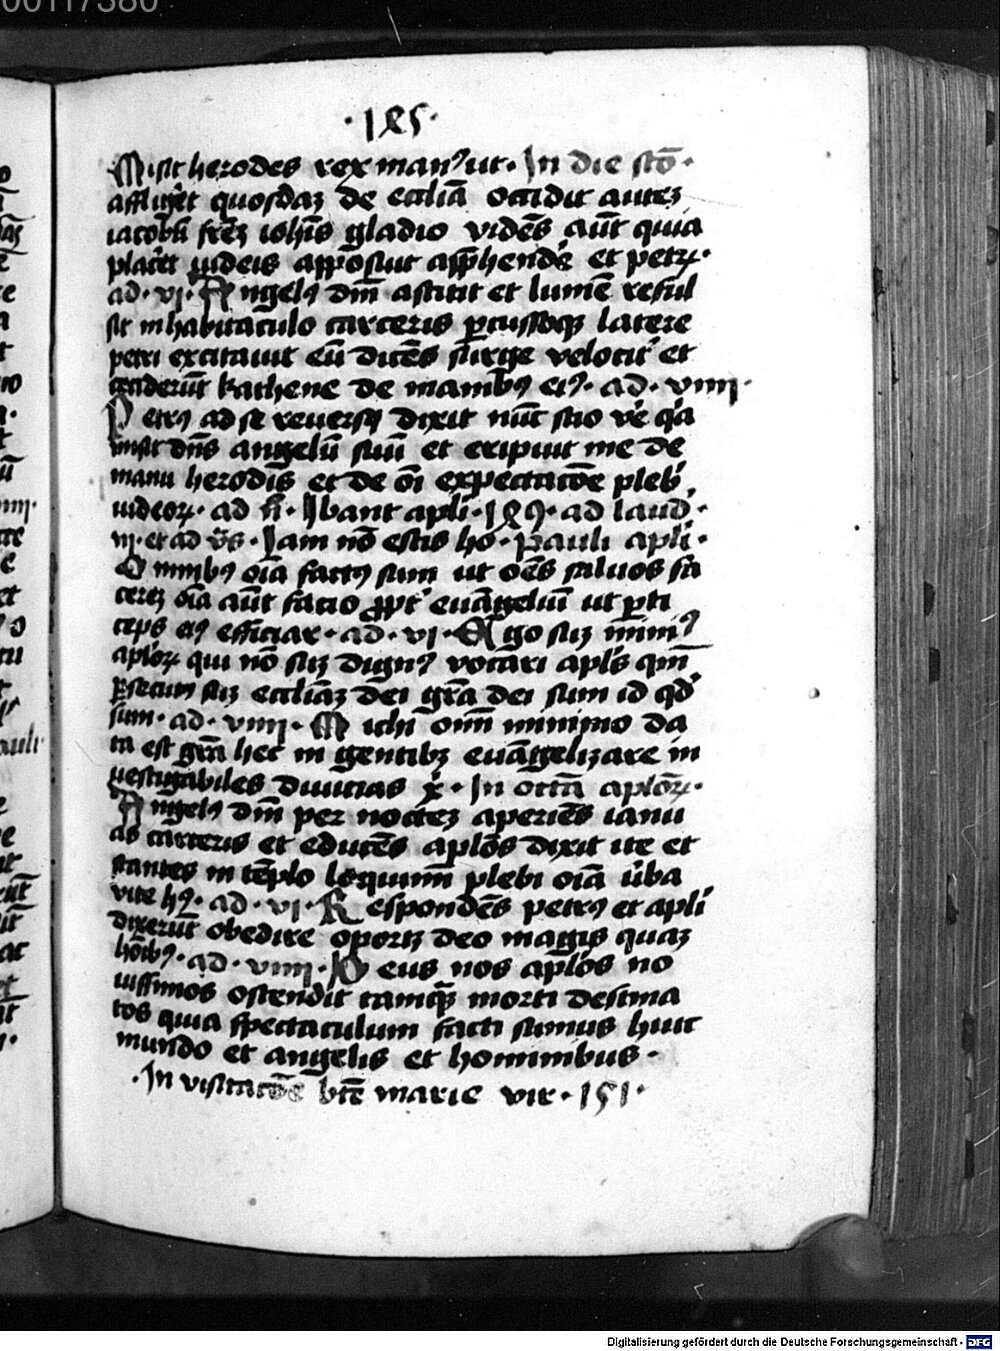 00117380
·185·
Misit herodes rex man⁹ ut· In die scō·
affligēt quosdaz de eccliā occidit autez
iacobū frēz iohīs gladio vidēs aūt quia
placēt iudeis apposuit apphendē et petrꝝ·
ad· vi· Angelꝰ dnī astitit et lumē reful
sit in habitaculo carceris percussoqꝫ latere
petri excitauit eū dicēs surge velocit' et
ceciderūt kathene de manibꝰ eiꝰ· ad· viiii·
Petrꝰ ad se reuersꝰ dixit nūc scio v'e q'a
misit dn̄s angelū suū et eripuit me de
manu herodis et de oī expectacōe plebī
iudeorꝝ· ad · Ibant apli· 189· ad laud·
vi· et ad v̄s· Iam nō estis ho· Pauli apli·
Omnibꝰ oīa factꝰ sum ut oēs saluos fa
cerez oīa aūt facio ꝓpt' euāgeliū ut ꝑti
ceps eiꝰ efficiar· ad· vi· Ego suꝫ minimꝰ
aplorꝝ qui nō suꝫ dignꝰ vocari aplꝰs qm̄
ꝑsecutꝰ suꝫ eccliāz dei grā dei sum id qd'
sum· ad· viiii· Michi om̄ minimo da
ta est grā hec in gentibꝫ euāgelizare in
uestigabiles diuicias x̄· In octā aplōrꝝ·
Angelꝰ dnī per noctez aperiēs ianu
as carceris et educēs aplōs dixit ite et
stantes in tēplo loquimī plebi oīa v̄ba
vite hꝰ· ad· vi· Respondēs petrꝰ et apli
dixerūt obedire oportꝫ deo magis quaz
hoībꝰ· ad· viiii· Deus nos aplōs no
uissimos ostendit tamqꝫ morti destina
tos quia spectaculum facti sumus huic
mundo et angelis et hominibus·
·In visitacōe btē marie vir· 151·
Digitalisierung gefördert durch die Deutsche Forschungsgemeinschaft - DFG